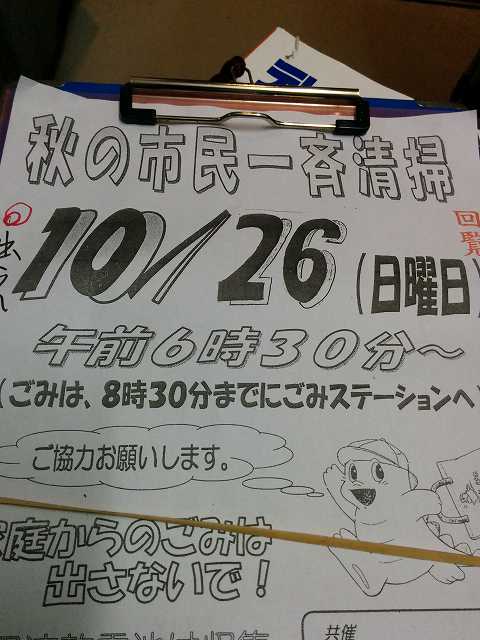 秋の市民一斉清掃
回覧
10/26(日曜日)
午前6時30分～
(ごみは、8時30分までにごみステーションへ)
ご協力お願いします。
家庭からのごみは
出さないで!
共催